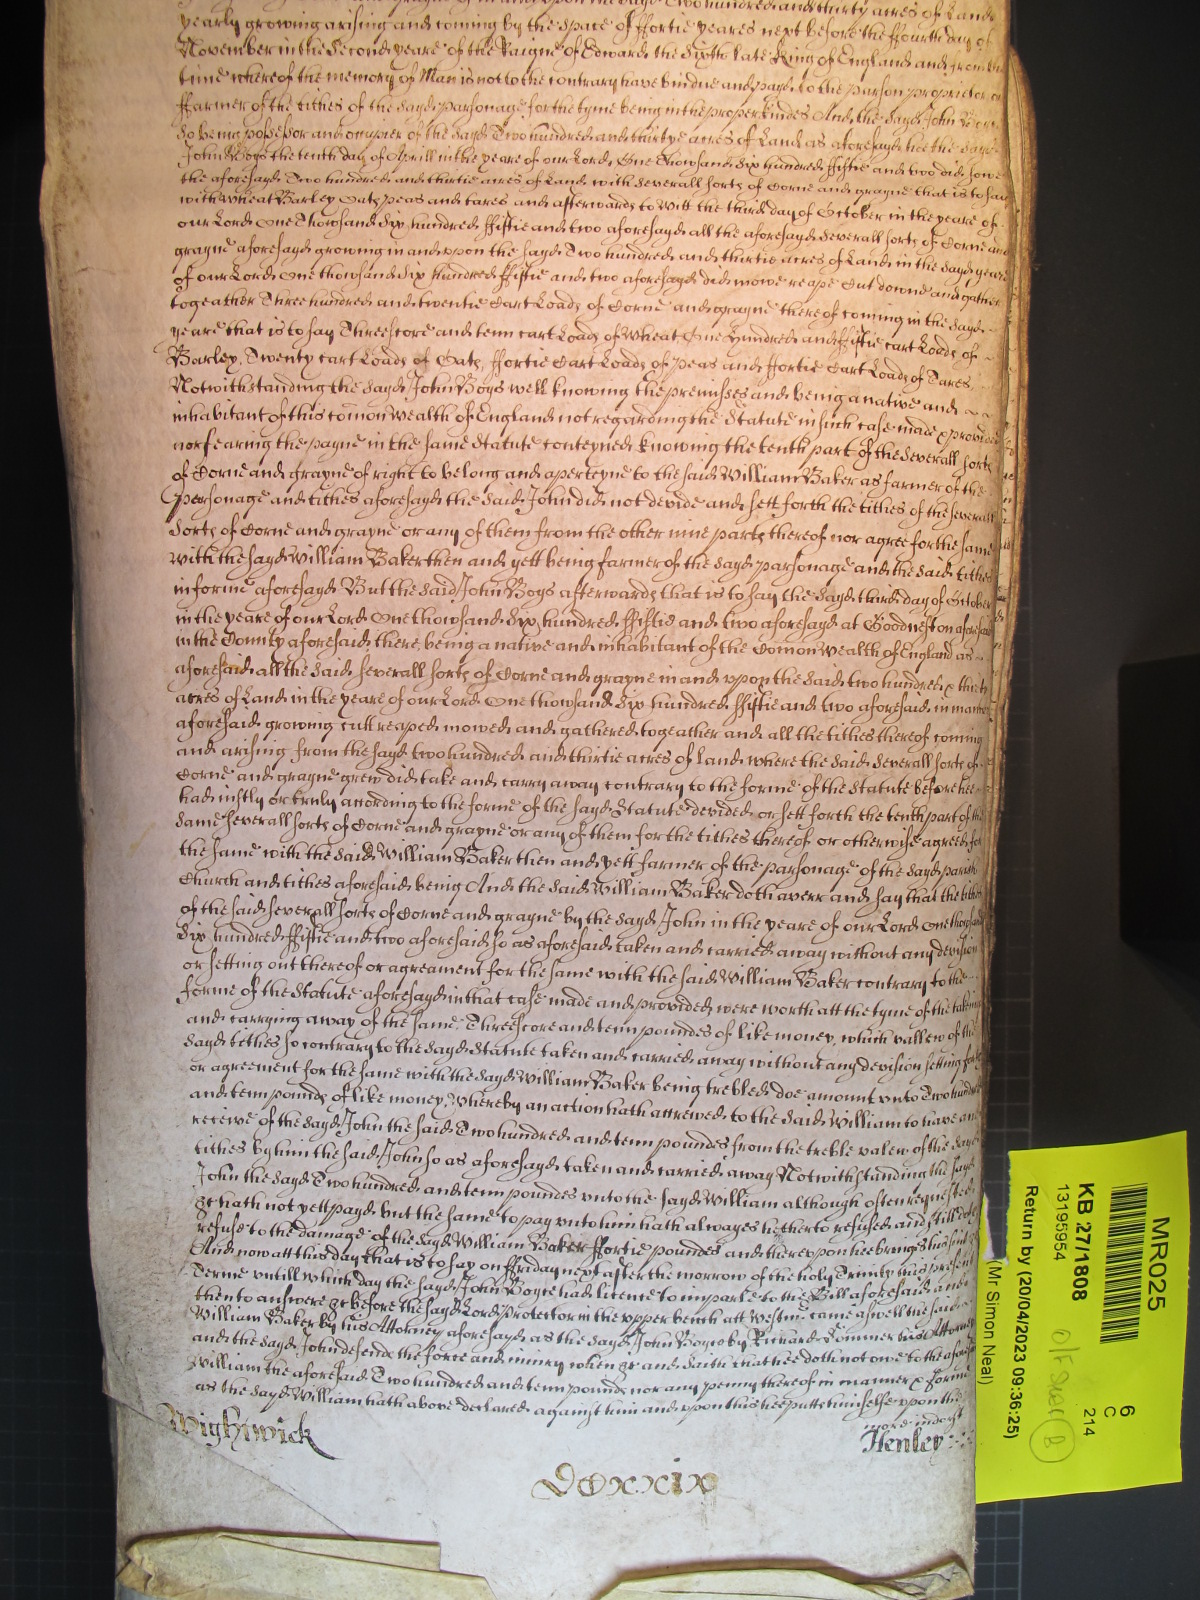 Two hundred and thirty acres of Land
yearly growing arising and coming by the space of ffortie yeares next before the ffourth day of
November in the Second yeare of the Raigne of Edward the Sixth late King of England and from the
time whereof the memory of Man is not to the contrary have bin due and payd to the parson proprietor or
ffarmer of the tithes of the sayd parsonage for the tyme being in their proper kindes And the sayd John Boys
so being possessor and occupier of the sayd Two hundred and thirtye acres of Land as aforesayd hee the sayd
John Boys the tenth day of Aprill in the yeare of our Lord One Thowsand Six hundred ffiftie and two did sowe
the aforesayd Two hundred and thirtie acres of Land with severall sorts of Corne and grayne that is to say
with wheat Barley Oats peas and tares and afterwards to witt the third day of October in the yeare of
our Lord One Thowsand Six hundred ffiftie and two aforesayd all the aforesayd severall sorts of Corne and
grayne aforesayd growing in and upon the sayd Two hundred and thirtie acres of Land in the sayd yeare
of our Lord One thowsand Six hundred ffiftie and two aforesayd did mowe reape Cut downe and gather
togeather Three hundred and twentie Cart Loads of Corne and grayne thereof coming in the sayd
yeare that is to say Threescore and tenn cart Loads of wheat One Hundred and ffiftie cart Loads of
Barley, Twenty cart Loads of Oats, ffortie Cart Loads of Peas and ffortie Cart Loads of Tares
Notwithstanding the sayd John Boys well knowing the premisses and being a native and
inhabitant of this comon wealth of England not regarding the Statute in such case made & provided
nor fearing the payne in the same Statute conteyned knowing the tenth part of the severall sorts
of Corne and grayne of right to belong and aperteyne to the said William Baker as farmer of the
Personage and tithes aforesayd the said John did not devide and sett forth the tithes of the severall
sorts of Corne and grayne or any of them from the other nine parts thereof nor agree for the same
with the sayd William Baker then and yett being farmer of the sayd parsonage and the said tithes
in forme aforesayd But the said John Boys afterwards that is to say the sayd third day of October
in the yeare of our Lord One thowsand Six hundred ffiftie and two aforesayd at Goodneston aforesaid
in the County aforesaid there being a native and inhabitant of the Comon wealth of England as
aforesaid all the said severall sorts of Corne and grayne in and uppon the said two hundred & thirty
acres of Land in the yeare of our Lord One thowsand Six hundred ffiftie and two aforesaid in manner
aforesaid growing cutt reaped mowed and gathered togeather and all the tithes thereof coming
and arising from the sayd two hundred and thirtie acres of land where the said severall sorts of
Corne and grayne grew did take and carry away contrary to the forme of the Statute before hee
had iustly or truly according to the forme of the sayd Statute devided or sett forth the tenth part of the
same severall sorts of Corne and grayne or any of them for the tithes thereof or otherwise agreed for
the same with the said William Baker then and yett farmer of the parsonage of the sayd parish
Church and tithes aforesaid being And the said William Baker doth averr and say that the tithes
of the said severall sorts of Corne and grayne by the sayd John in the yeare of our Lord one thowsand
Six hundred ffiftie and two aforesaid so as aforesaid taken and carried away without any devision
or setting out thereof or agreament for the same with the said William Baker contrary to the
forme of the Statute aforesayd in that case made and provided were worth att the tyme of the takeing
and carrying away of the same Threescore and tenn poundes of like money, which vallew of the
sayd tithes so contrary to the sayd Statute taken and carried away without any devision setting forth
or agreement for the same with the sayd William Baker being trebled doe amount unto Two hundred
and tenn pounds of like money, whereby an action hath accrewed to the said William to have and
receive of the sayd John the said Two hundred and tenn poundes from the treble valew of the sayd
tithes by him the said John so as aforesayd taken and carried away Notwithstanding the sayd
John the sayd Two hundred and tenn poundes unto the sayd William although often requested
&c hath not yett payd but the same to pay unto him hath alwayes hetherto refused and still doth
refuse to the damage of the sayd William Baker ffortie poundes and thereupon hee brings his suit &c
And now att this day that is to say on ffriday next after the morrow of the holy Trinity this present
Terme untill which day the sayd John Boys had licence to imparle to the Bill aforesaid and
then to answere &c before the sayd Lord Protector in the upper bench att Westm. came aswell the said
William Baker by his Attorney aforesayd as the sayd John Boys by Richard Hommer his Attorney
and the sayd John defends the force and iniury when &c and saith that hee doth not owe to the aforesaid
William the aforesaid Two hundred and tenn pounds nor any penny thereof in manner & forme
as the sayd William hath above declared against him and upon this hee putts himselfe upon the
more indorst
Wightwick
Henley
DCxxix
MR025
KB 27/1808
13195954
Return by (20/04/2023 09:36:25)
(Mr Simon Neal)
6
C
214
B